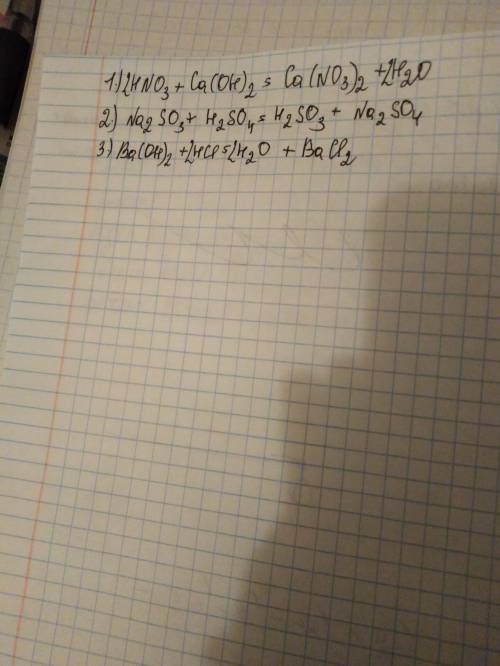 1) 2HNO₃ + Ca(OH)₂ = Ca(NO₃)₂ + 2H₂O
2) Na₂SO₃ + H₂SO₄ = H₂SO₃ + Na₂SO₄
3) Ba(OH)₂ + 2HCl = 2H₂O + BaCl₂